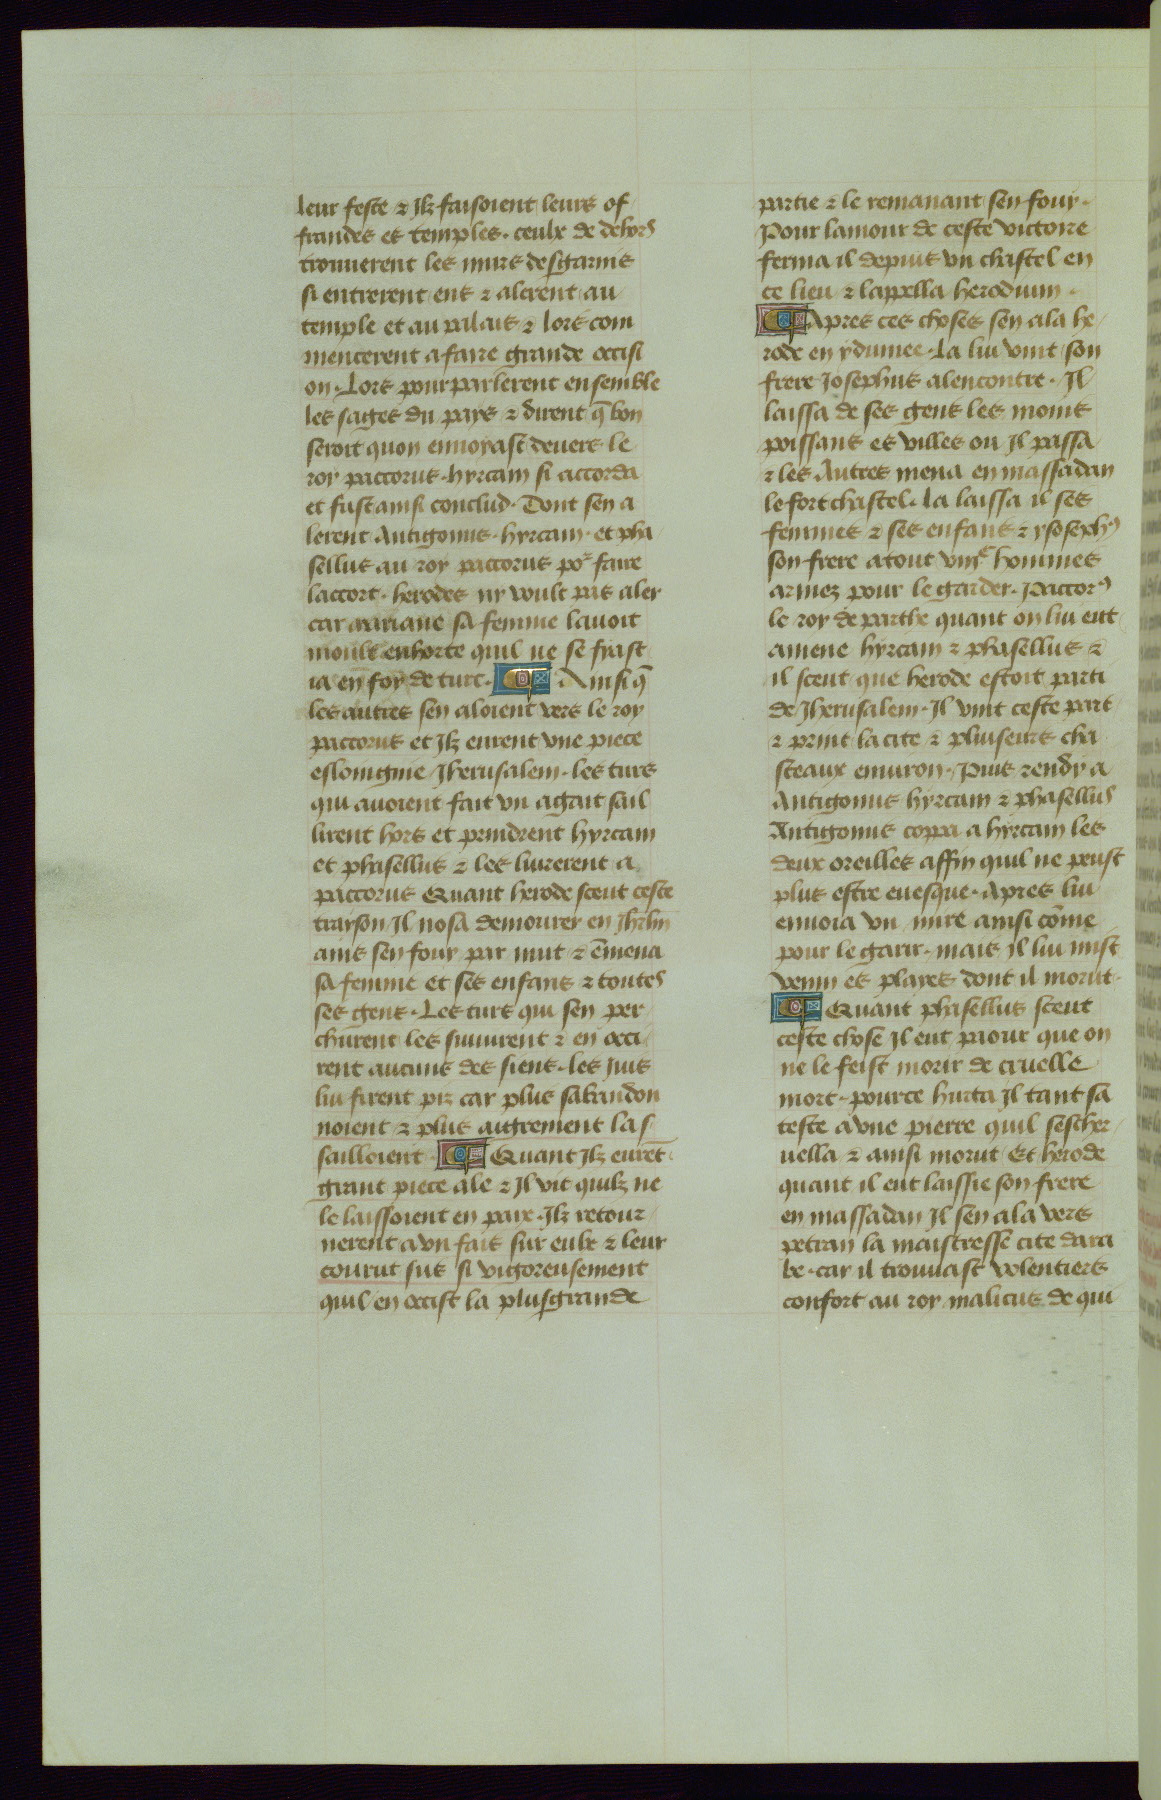 leur feste ⁊ Jlz faisoient leurs of
frandes es temples. ceulx de dehors
trouuerent les murs desgarnis
si entrerent ens ⁊ alerent au
temple et au palais ⁊ lors com
mencerent a faire grande occisi
on. Lors pourparlerent ensemble
les sages du pays ⁊ dirent q̄ bon
seroit quon enuoyast deuers le
roy paccorus. hyrcam si accorda
et fust ainsi conclud. Dont sen a
lerent Antigonus. hyrcam. et pha
sellus au roy paccorus por faire
laccort. herodes ny voult pas aler
car mariane sa femme lauoit
moult enhorte quil ne se fiast
ia en foy de turc. ¶ Ainsi q̄
les autres sen aloient vers le roy
paccorus et Jlz eurent vne piece
eslongnie Jherusalem. les turs
qui auoient fait vn agait sail
lirent hors et prindrent hyrcam
et phasellus ⁊ les liurerent a
paccorus Quant herode sceut ceste
trayson Jl nosa demourer en Jhrlm̄
ains sen fouy par nuit ⁊ ēmena
sa femme et ses enfans ⁊ toutes
ses gens. Les turs qui sen per
churent les suiuirent ⁊ en occi
rent aucuns des siens. les juis
lui firent piz car plus sabandon
noient ⁊ plus aigrement las
sailloient. ¶ Quant Jlz eurēt
grant piece ale ⁊ Jl vit quilz ne
le laissoient en paix. Jlz retour
nerent a vn fais sur eulx ⁊ leur
courut sus si vigoreusement
quil en occist la plusgrande
partie ⁊ le remanant sen fouy.
Pour lamour de ceste victoire
ferma il depuis vn chastel en
ce lieu ⁊ lappella herodium.
¶ Apres ces choses sen ala he
rode en ydumee. La lui vint son
frere Josephus alencontre. Jl
laissa de ses gens les moins
poissans es villes ou Jl passa
⁊ les Autres mena en massadan
le fort chastel. La laissa il ses
femmes ⁊ ses enfans ⁊ yosephꝰ
son frere atout viijc hommes
armez pour le garder. Paccorꝰ
le roy de parthe quant on lui eut
amene hyrcam ⁊ phasellus ⁊
il sceut que herode estoit parti
de Jherusalem. Jl vint ceste part
⁊ print la cite ⁊ pluiseurs cha
steaux enuiron. Puis rendy a
Antigonus hyrcam ⁊ phasellus
Antigonus coppa a hyrcam les
deux oreilles affin quil ne peust
plus estre euesque. Apres lui
enuoia vn mire ainsi cōme
pour le garir. mais Jl lui mist
venin es playes dont il morut.
¶ Quant phasellus sceut
ceste chose Jl eut paour que on
ne le feist morir de cruelle
mort. pource hurta Jl tant sa
teste a vne pierre quil sescher
uella ⁊ ainsi morut Et herode
quant il eut laissie son frere
en massadan Jl sen ala vers
petran la maistresse cite dara
be. car il trouuast volentiers
confort au roy malicus de qui